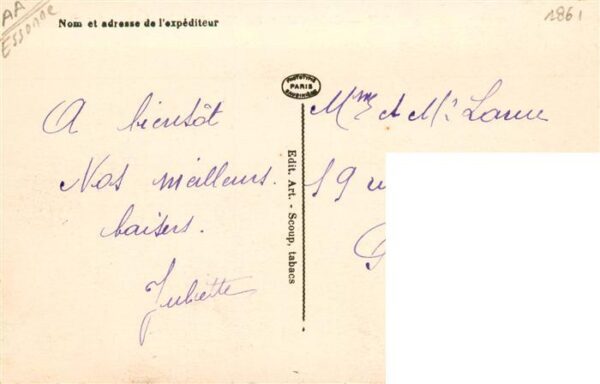 AA
Essonne
Nom et adresse de l'expéditeur
1861
A bientôt
Nos meilleurs
baisers.
Juliette
PHOTOTYPIE
PARIS
Edit. Art. - Scoup, tabacs
Mme et Mr Larue
19